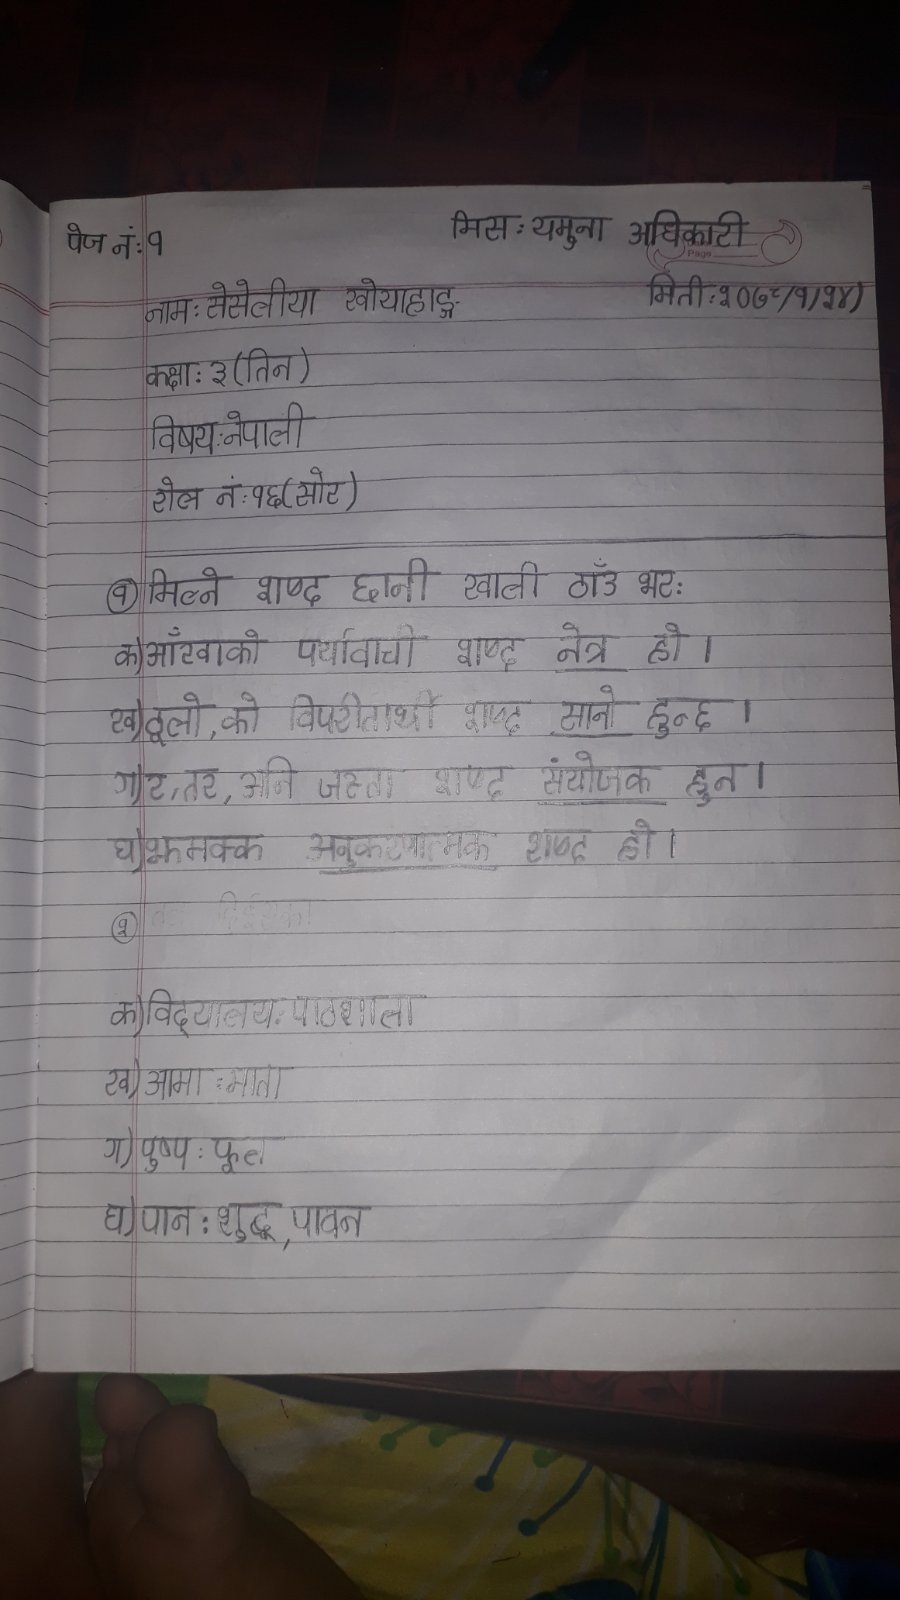 पेज नं: १
मिस: यमुना अधिकारी
Page
नाम: सेसेलीया खोयाहाङ्ग
मिती: २०७८/१/२४)
कक्षा: ३ (तिन)
विषय: नेपाली
रोल नं: १६(सोर)
१ मिल्ने शब्द छानी खाली ठाँउ भर:
क) आँखाको पर्यावाची शब्द नेत्र हो ।
ख) ठूलो, को विपरीतार्थी शब्द सानो हुन्छ ।
ग) र, तर, अनि जस्ता शब्द संयोजक हुन ।
घ) झमक्क अनुकरणात्मक शब्द हो ।
२
क) विद्यालय: पाठशाला
ख) आमा : माता
ग) पुष्प : फूल
घ) पान : शुद्ध, पावन